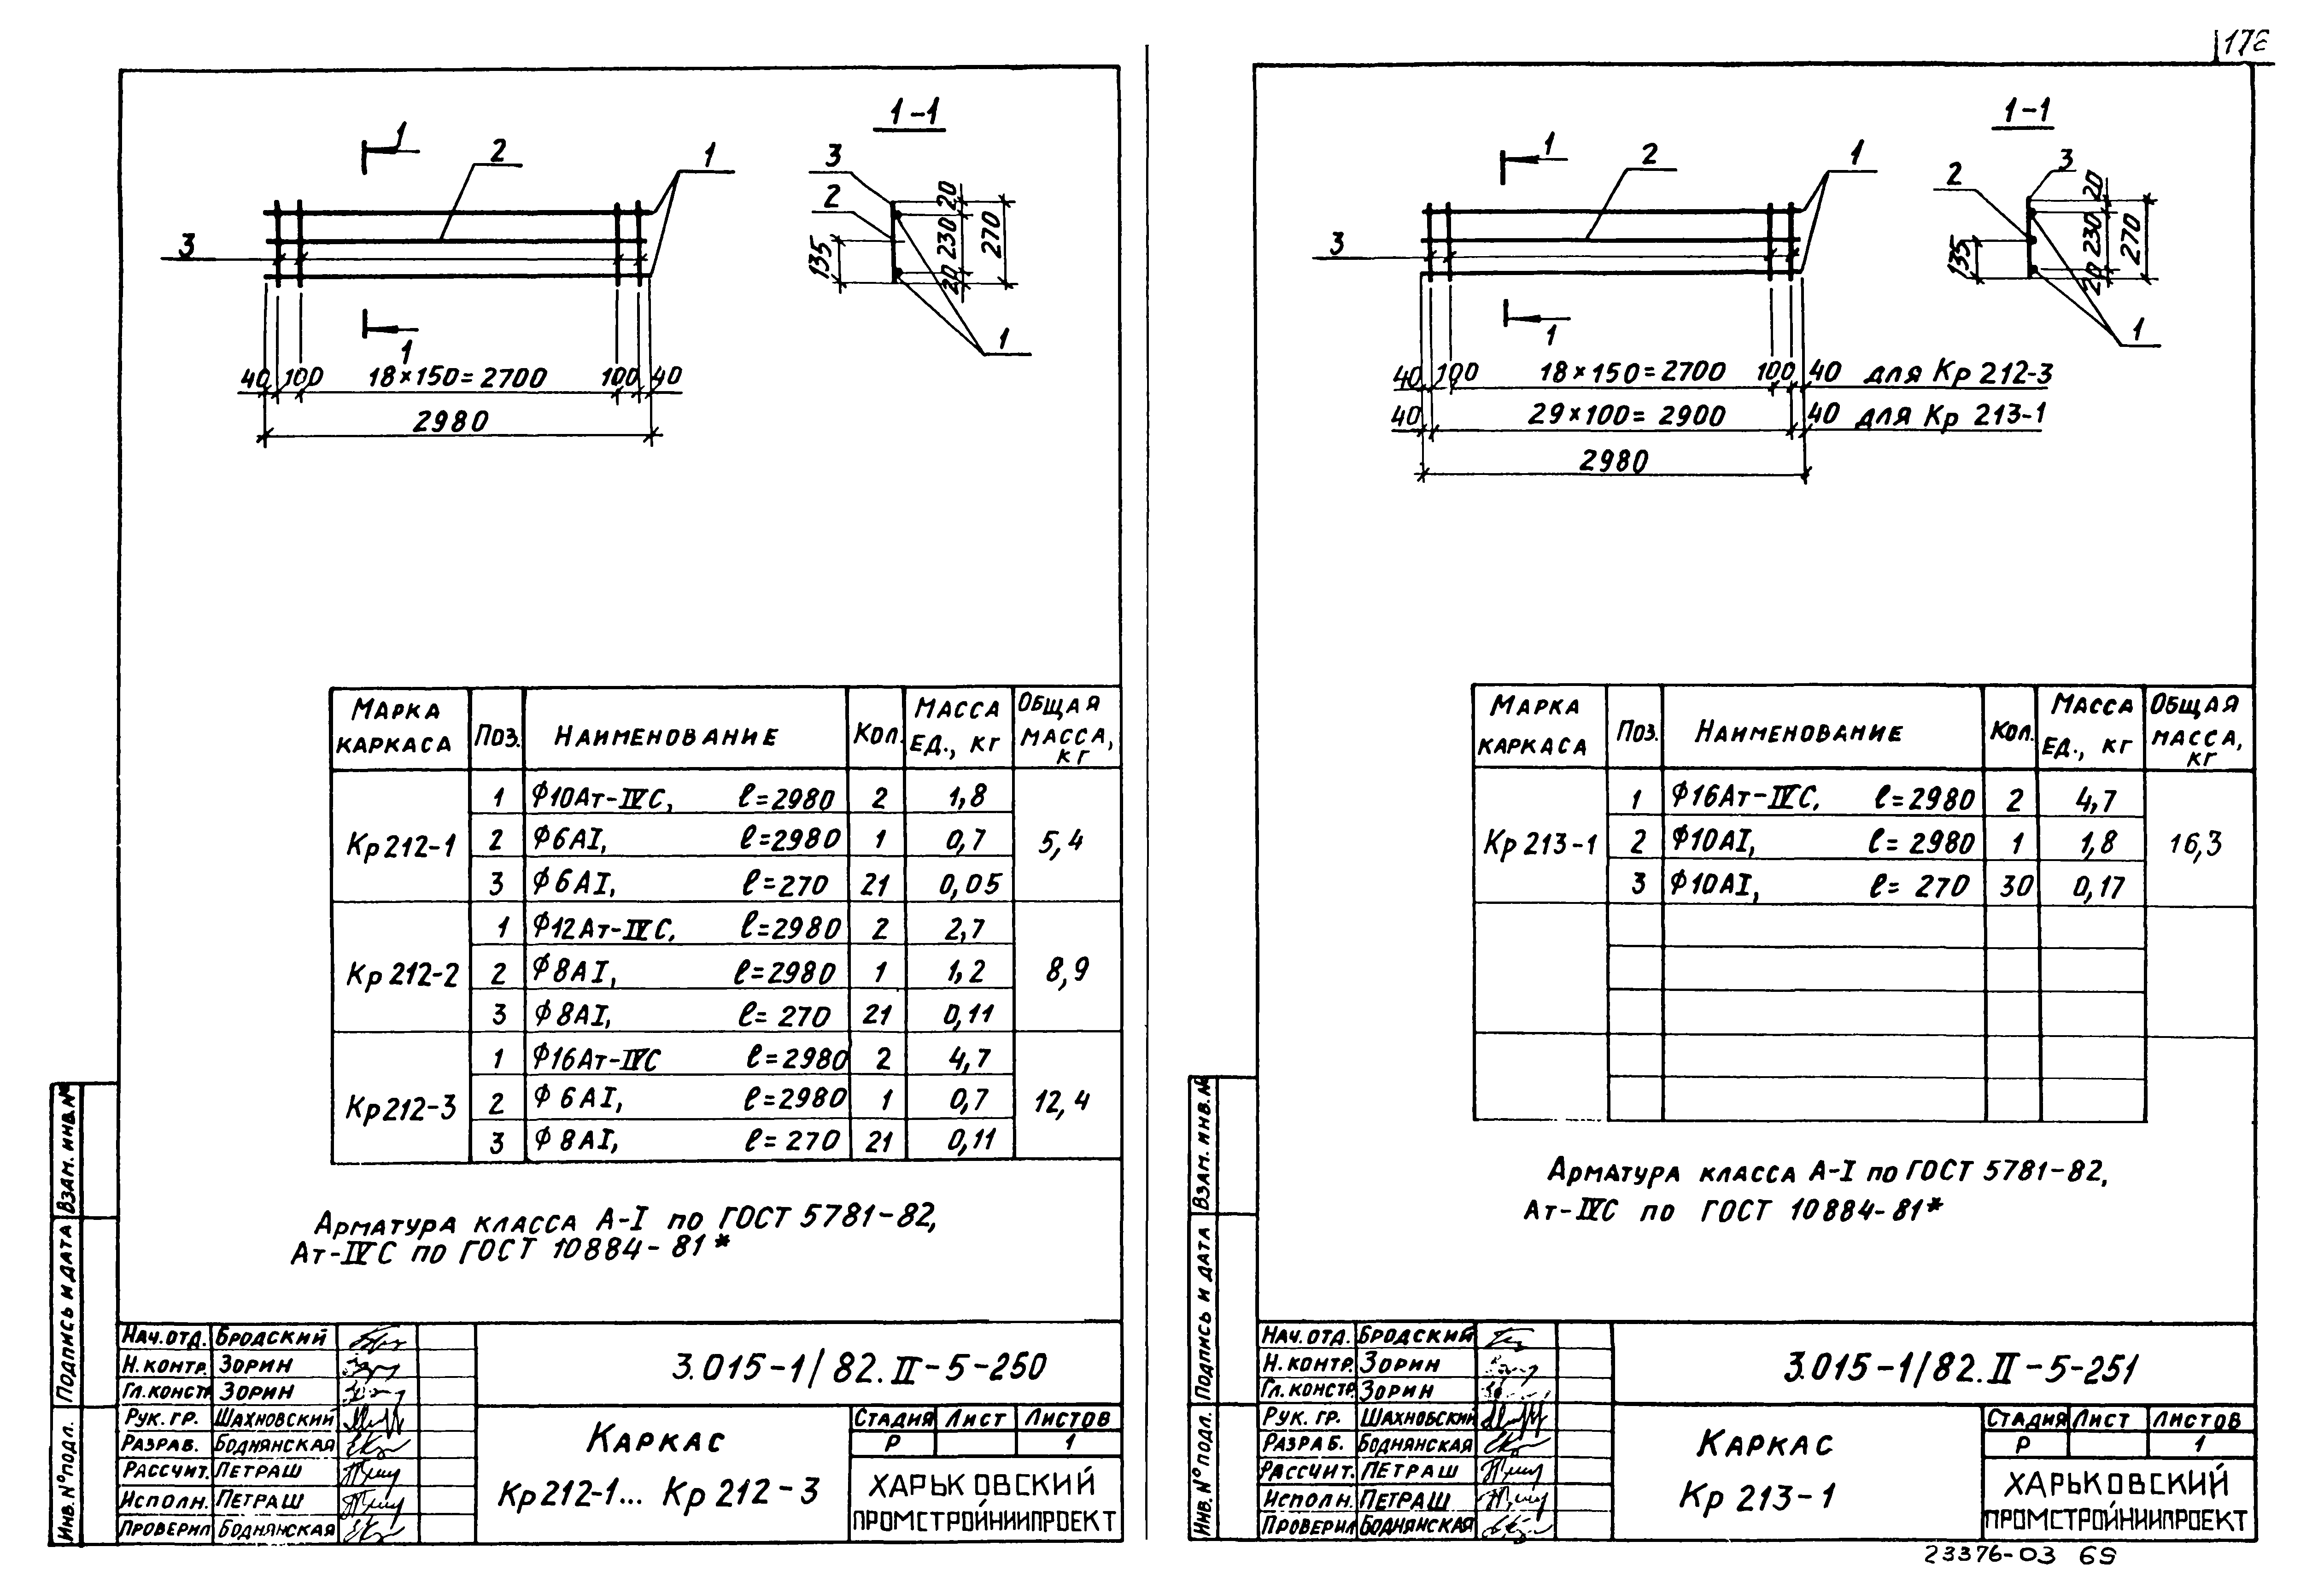 178
1-1
1
2
1
3
3
2
20
230
20
270
135
1
1
40 100 18×150=2700 100 40
2980
Марка каркаса Поз. Наименование Кол. Масса ед., кг Общая масса, кг
Кр212-1 5,4
1 Ф10Ат-IVС, ℓ=2980 2 1,8
2 Ф6АI, ℓ=2980 1 0,7
3 Ф6АI, ℓ=270 21 0,05
Кр212-2 8,9
1 Ф12Ат-IVС, ℓ=2980 2 2,7
2 Ф8АI, ℓ=2980 1 1,2
3 Ф8АI, ℓ=270 21 0,11
Кр212-3 12,4
1 Ф16Ат-IVС ℓ=2980 2 4,7
2 Ф6АI, ℓ=2980 1 0,7
3 Ф8АI, ℓ=270 21 0,11
Арматура класса А-I по ГОСТ 5781-82,
Ат-IVС по ГОСТ 10884-81*
Взам. инв.№
Подпись и дата
Инв.№подл.
Нач.отд. Бродский
Н.контр. Зорин
Гл.констр Зорин
Рук. гр. Шахновский
Разраб. Боднянская
Рассчит. Петраш
Исполн. Петраш
Проверил Боднянская
3.015-1/82.II-5-250
Каркас
Кр212-1... Кр212-3
Стадия Лист Листов
Р 1
ХАРЬКОВСКИЙ
ПРОМСТРОЙНИИПРОЕКТ
1-1
1
2
1
3
2
3
20
230
20
270
135
1
1
40 100 18×150=2700 100 40 для Кр 212-3
40 29×100=2900 40 для Кр 213-1
2980
Марка каркаса Поз. Наименование Кол. Масса ед., кг Общая масса, кг
Кр213-1 16,3
1 Ф16Ат-IVС, ℓ=2980 2 4,7
2 Ф10АI, ℓ=2980 1 1,8
3 Ф10АI, ℓ=270 30 0,17
Арматура класса А-I по ГОСТ 5781-82,
Ат-IVС по ГОСТ 10884-81*
Взам. инв.№
Подпись и дата
Инв.№подл.
Нач. отд. Бродский
Н.контр. Зорин
Гл.констр. Зорин
Рук. гр. Шахновский
Разраб. Боднянская
Рассчит. Петраш
Исполн. Петраш
Проверил Боднянская
3.015-1/82.II-5-251
Каркас
Кр 213-1
Стадия Лист Листов
Р 1
ХАРЬКОВСКИЙ
ПРОМСТРОЙНИИПРОЕКТ
23376-03 69